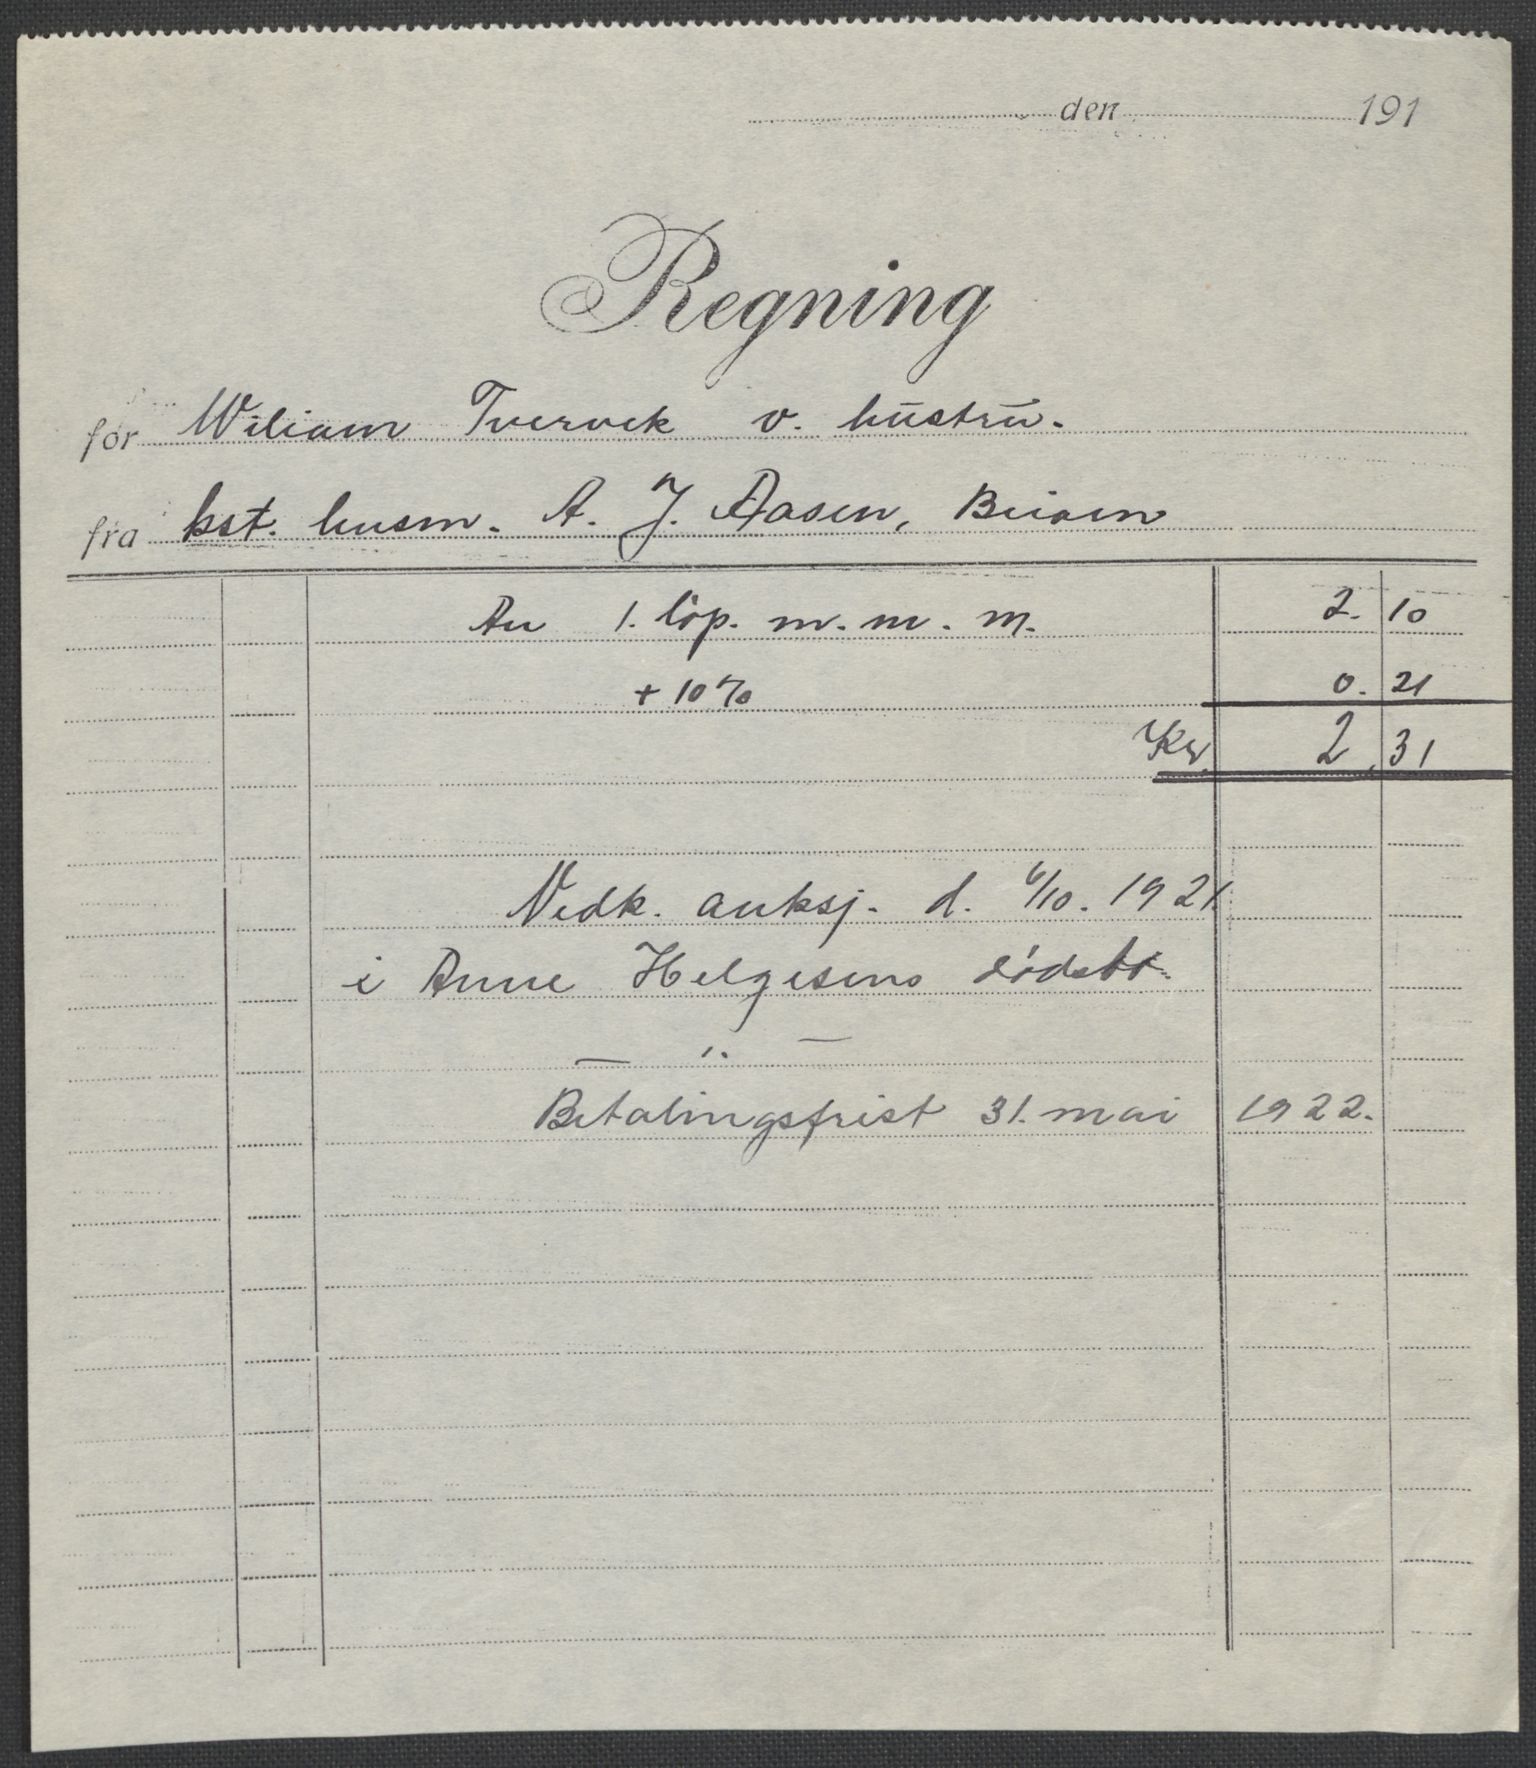 den 191
Regning
for Wiliam Tvervek v. hustru.
fra kst. lensm. A. J. Aasen, Beiarn
An 1. löp. m. m. m. 2. 10
+ 10% 0. 21
Kr. 2. 31
Vedk. auksj. d. 6/10. 1921
i Anne Helgesens dödsbo.
Betalingsfrist 31. mai 1922.